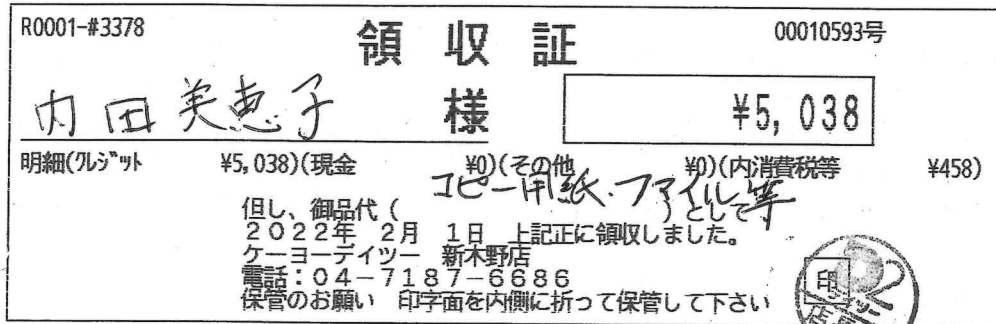 R0001-#3378
領収証
00010593号
内田美恵子 様
¥5,038
明細(クレジット ¥5,038)(現金 ¥0)(その他 ¥0)(内消費税等 ¥458)
コピー用紙.ファイル等
但し、御品代( )として
2022年 2月 1日 上記正に領収しました。
ケーヨーデイツー 新木野店
電話:04-7187-6686
保管のお願い 印字面を内側に折って保管して下さい
印